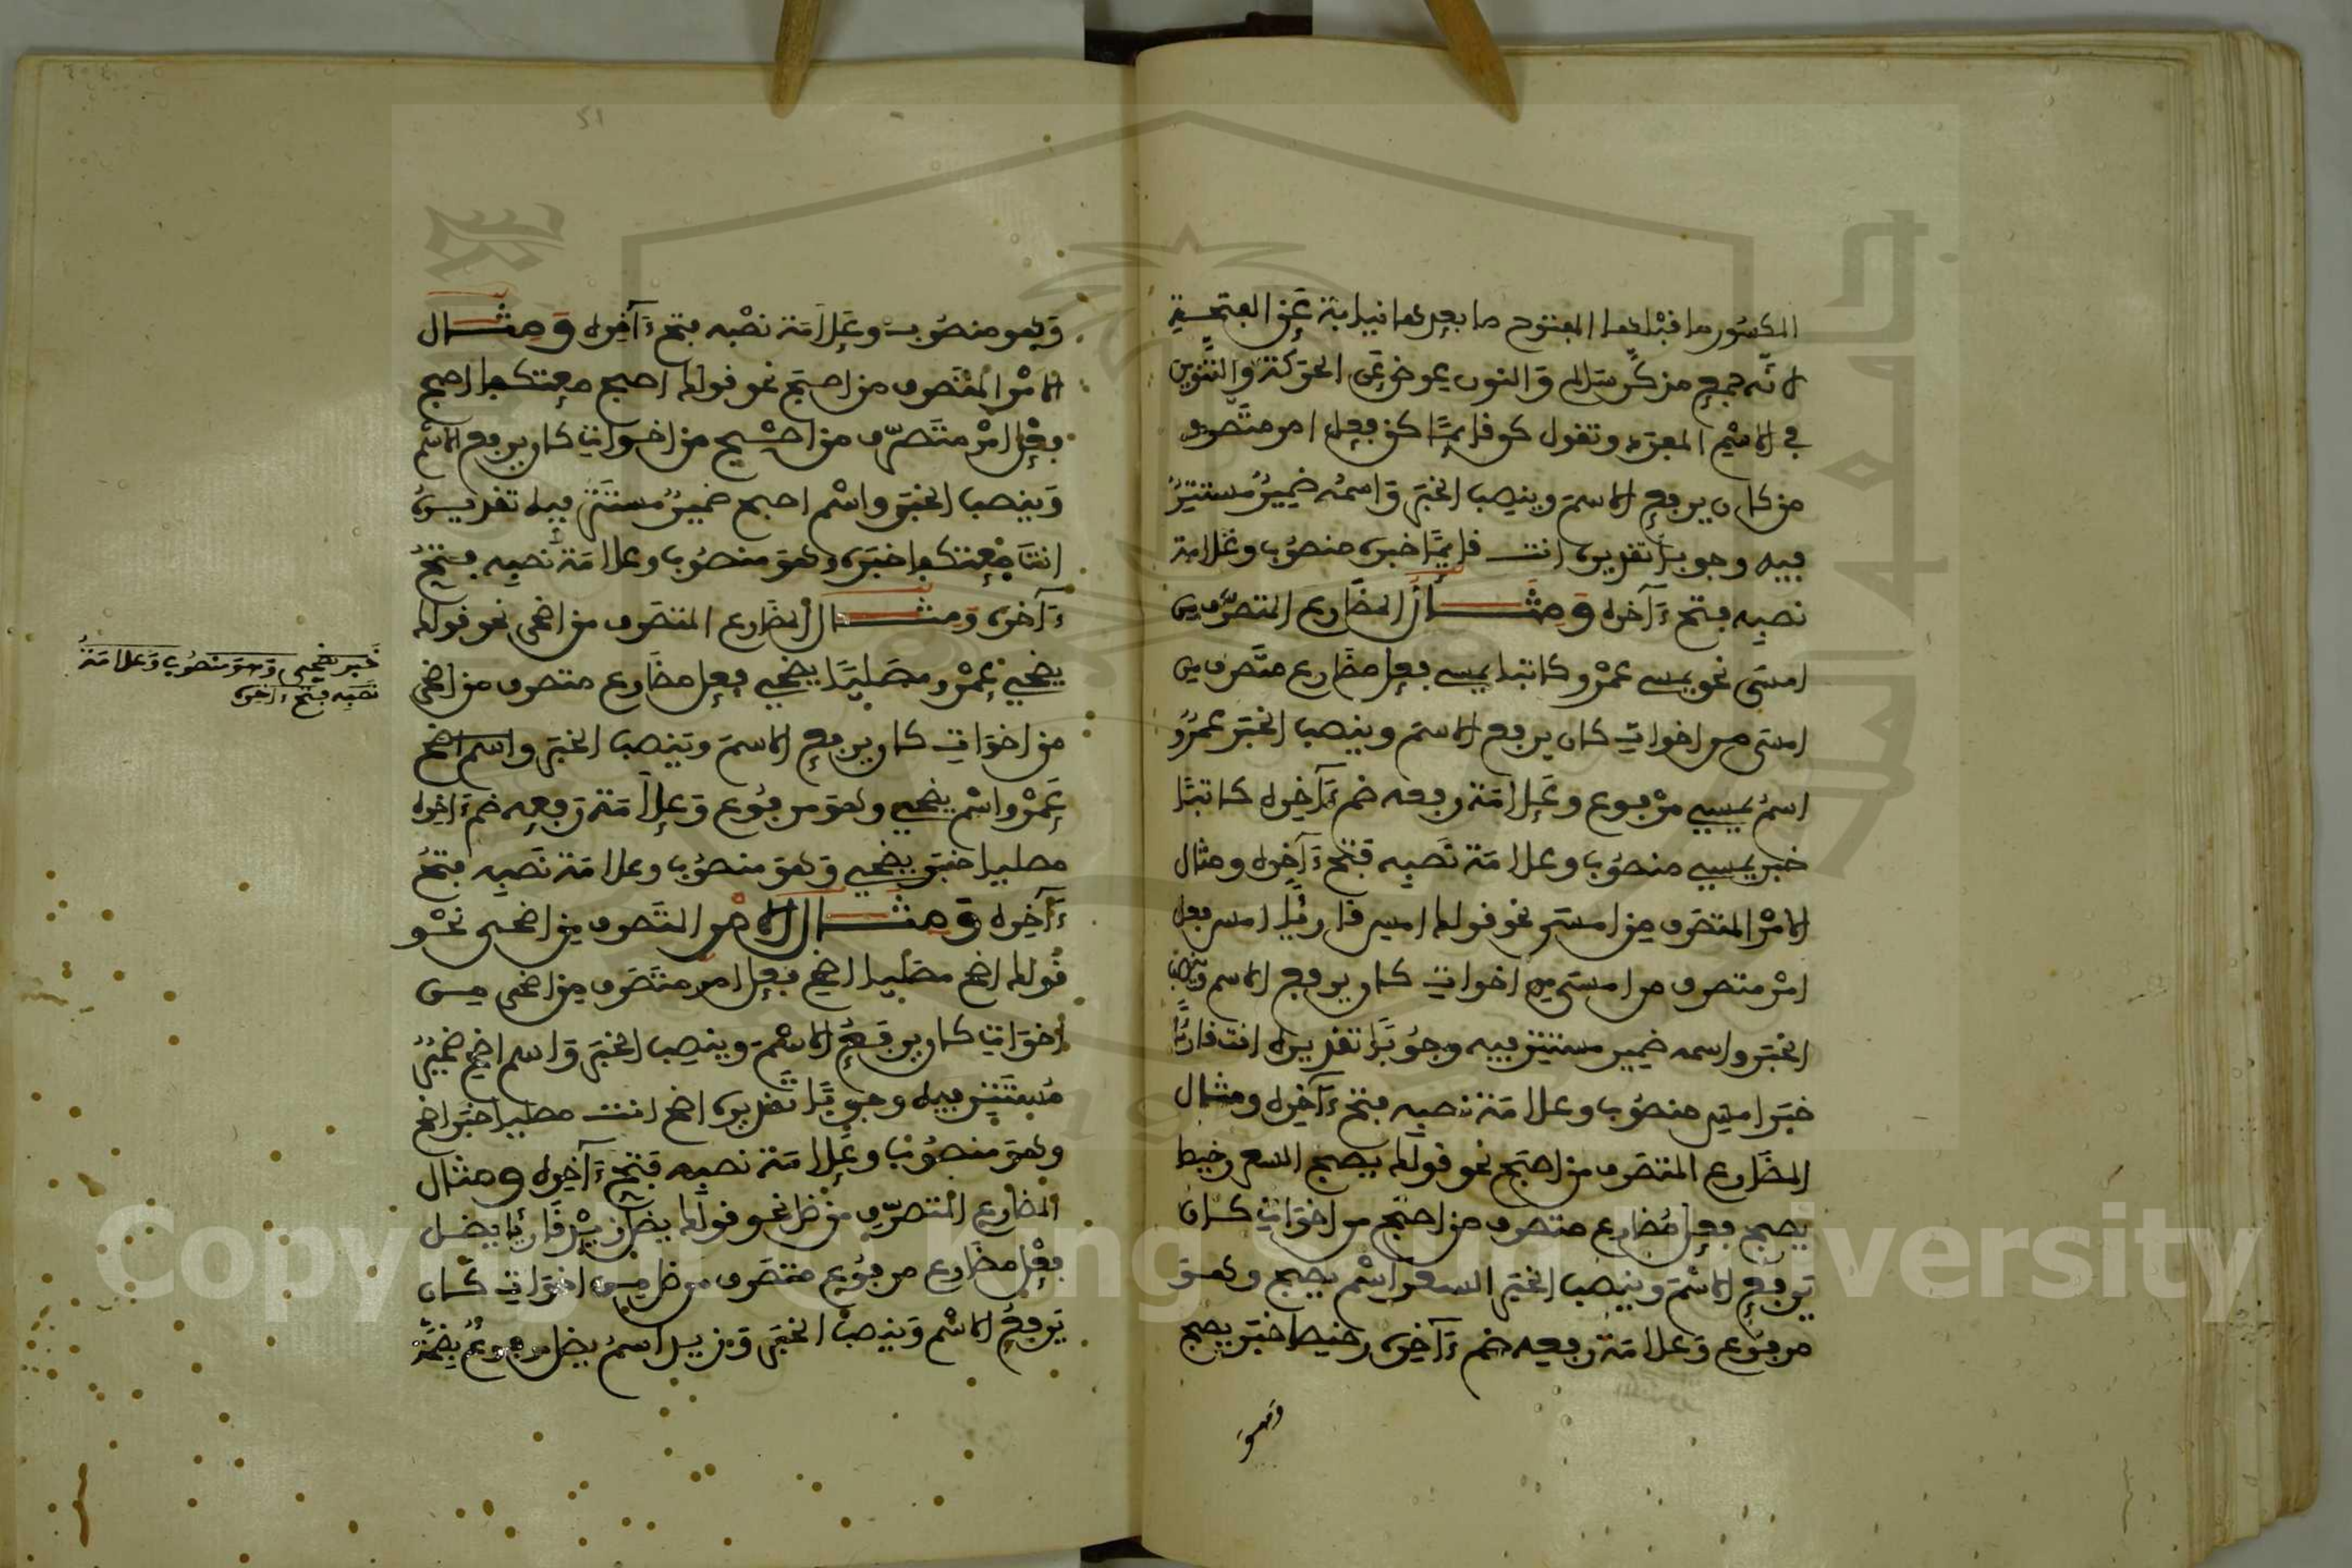 المكسور ما قبلها المفتوح ما بعدها نيابة عن الفتحة
لانه جمع مذكر سالم والنون عوض عن الحركة والتنوين
في الاسم المفرد وتقول كن قايما كن فعل امر متصرف
من كان يرفع الاسم وينصب الخبر واسمه ضمير مستتر
فيه وجوبا تقديره انت قايما خبره منصوب وعلامة
نصبه فتح ءاخره ومثال المضارع المتصرف من
امسى نحو يمسي عمرو كاتبا يمسي فعل مضارع متصرف من
امسى من اخوات كان يرفع الاسم وينصب الخبر عمرو
اسم يمسي مرفوع وعلامة رفعه ضم ءاخره كاتبا
خبر يمسي منصوب وعلامة نصبه فتح ءاخره ومثال
الامر المتصرف من امسى نحو قولك امس قاريا امس فعل
امر متصرف من امسى من اخوات كان يرفع الاسم وينصب
الخبر واسمه ضمير مستتر فيه وجوبا تقديره انت قاريا
خبر امس منصوب وعلامة نصبه فتح ءاخره ومثال
المضارع المتصرف من اصبح نحو قولك يصبح السعر رخيصا
يصبح فعل مضارع متصرف من اصبح من اخوات كان
يرفع الاسم وينصب الخبر السعر اسم يصبح وهو
مرفوع وعلامة رفعه ضم ءاخره رخيصا خبر يصبح
وهو
وهو منصوب وعلامة نصبه فتح ءاخره ومثال
الامر المتصرف من اصبح نحو قولك اصبح معتكفا اصبح
فعل امر متصرف من اصبح من اخوات كان يرفع الاسم
وينصب الخبر واسم اصبح ضمير مستتر فيه تقديره
انت معتكفا خبره وهو منصوب وعلامة نصبه فتح
ءاخره ومثال المضارع المتصرف من اضحى نحو قولك
يضحي عمرو مصليا يضحي فعل مضارع متصرف من اضحى
من اخوات كان يرفع الاسم وينصب الخبر واسم اضح
عمرو اسم يضحي وهو مرفوع وعلامة رفعه ضم ءاخره
مصليا خبر يضحي وهو منصوب وعلامة نصبه فتح
ءاخره ومثال الامر المتصرف من اضحى نحو
قولك اضح مصليا اضح فعل امر متصرف من اضحى من
اخوات كان يرفع الاسم وينصب الخبر واسم اضح ضمير
مستتر فيه وجوبا تقديره اضح انت مصليا خبر اضح
وهو منصوب وعلامة نصبه فتح ءاخره ومثال
المضارع المتصرف من ظل نحو قولك يضل زيد قاريا يضل
فعل مضارع مرفوع متصرف من ظل من اخوات كان
يرفع الاسم وينصب الخبر وزيد اسم يضل مرفوع بضمة
خبر يضحي وهو منصوب وعلامة
نصبه فتح ءاخره
Copyright © King Saud University